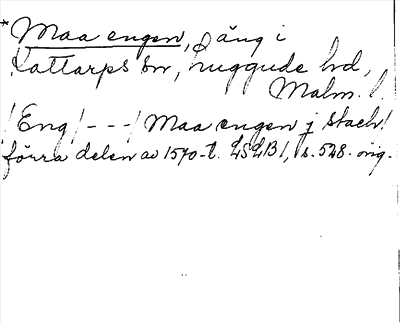 *Maa engen, äng i
Kattarps sn, Luggude hd,
Malm. l.
/Eng/ --- / Maa engen j stach/
förra delen av 1570-t. LSLB 1, s. 528. orig.